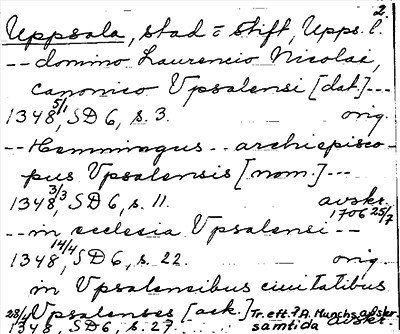 2.
Uppsala, stad o stift, Upps. l.
-- domino Laurencio Nicolai,
canonico Vpsalensi [dat.] ---
1348 5/1, SD 6, s. 3. orig.
-- Hemmingus -- archiepisco-
pus Vpsalensis [nom.] ---
1348 3/3, SD 6, s. 11. avskr.
1706 25/7
-- in ecclesia Vpsalensi --
1348 14/4, SD 6, s. 22. orig.
in Vpsalensibus ciuitatibus
Vpsalenses [ack.] Tr. eft. P. A. Munchs avskr.
1348, SD 6, s. 27. samtida avskr.